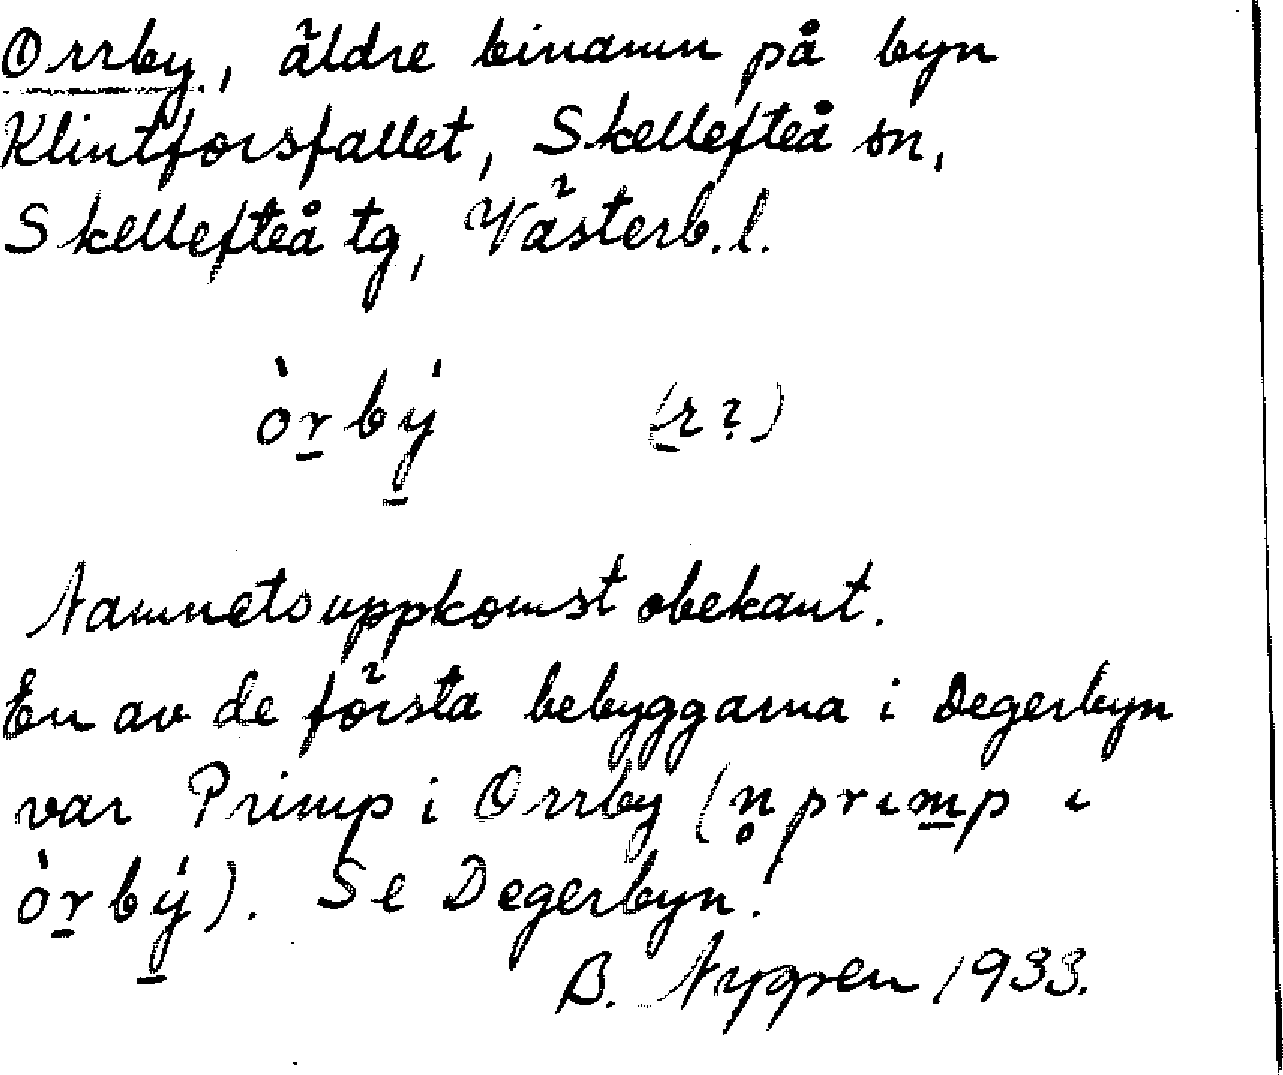 Orrby, äldre binamn på byn
Klintforsfallet, Skellefteå sn,
Skellefteå tg, Västerb.l.
òr̲bý̲ (r̲?)
Namnets uppkomst obekant.
En av de första bebyggarna i Degerbyn
var Primp i Orrby (n̥ prım̲p ı
òr̲bý̲). Se Degerbyn!
B. Nygren 1933.